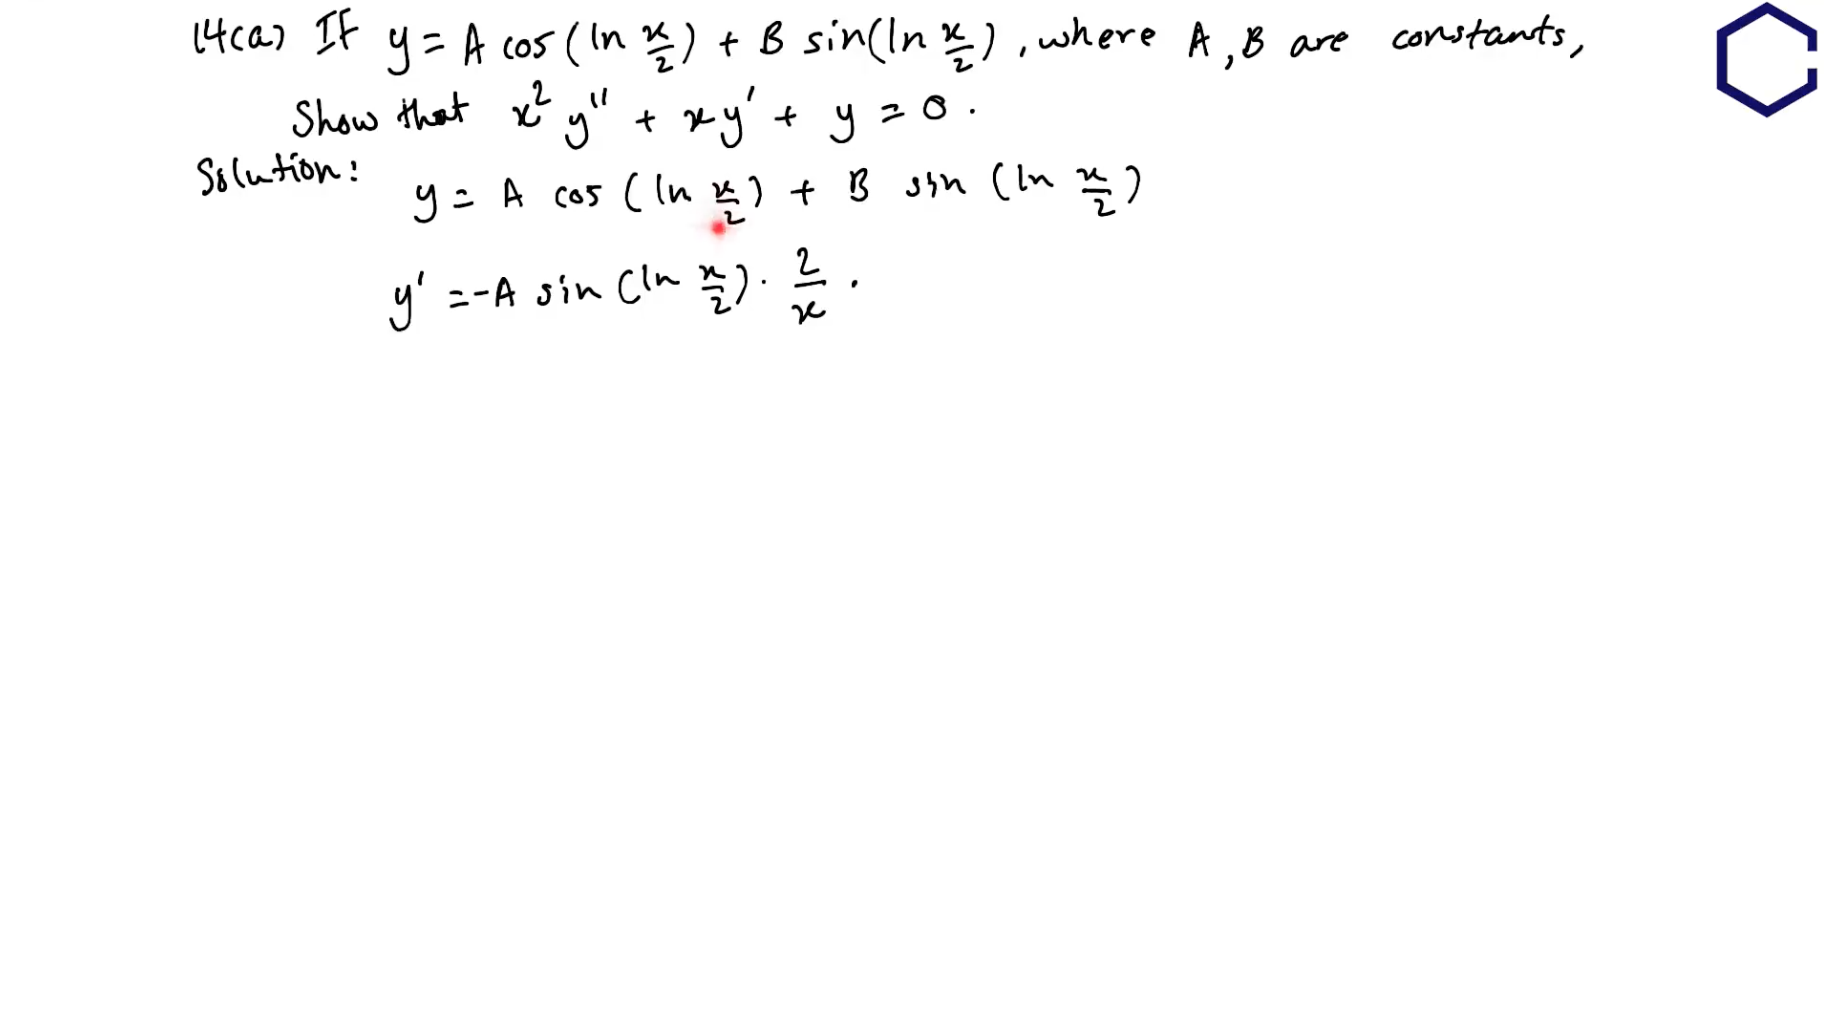 14(a) If y = A cos(ln x/2) + B sin(ln x/2), where A, B are constants,
Show that x² y'' + xy' + y = 0.
Solution:
y = A cos (ln x/2) + B sin (ln x/2)
y' = -A sin (ln x/2) · 2/x ·